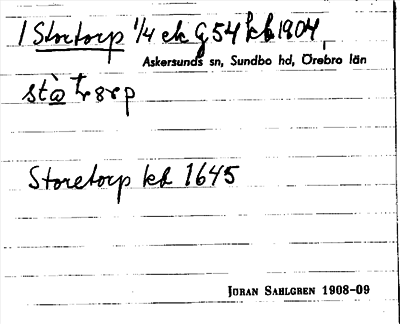 1 Stortorp 1/4 ek G 54 kb 1904,
Askersunds sn, Sundbo hd, Örebro län
Storetorp kd 1645
JÖRAN SAHLGREN 1908-09